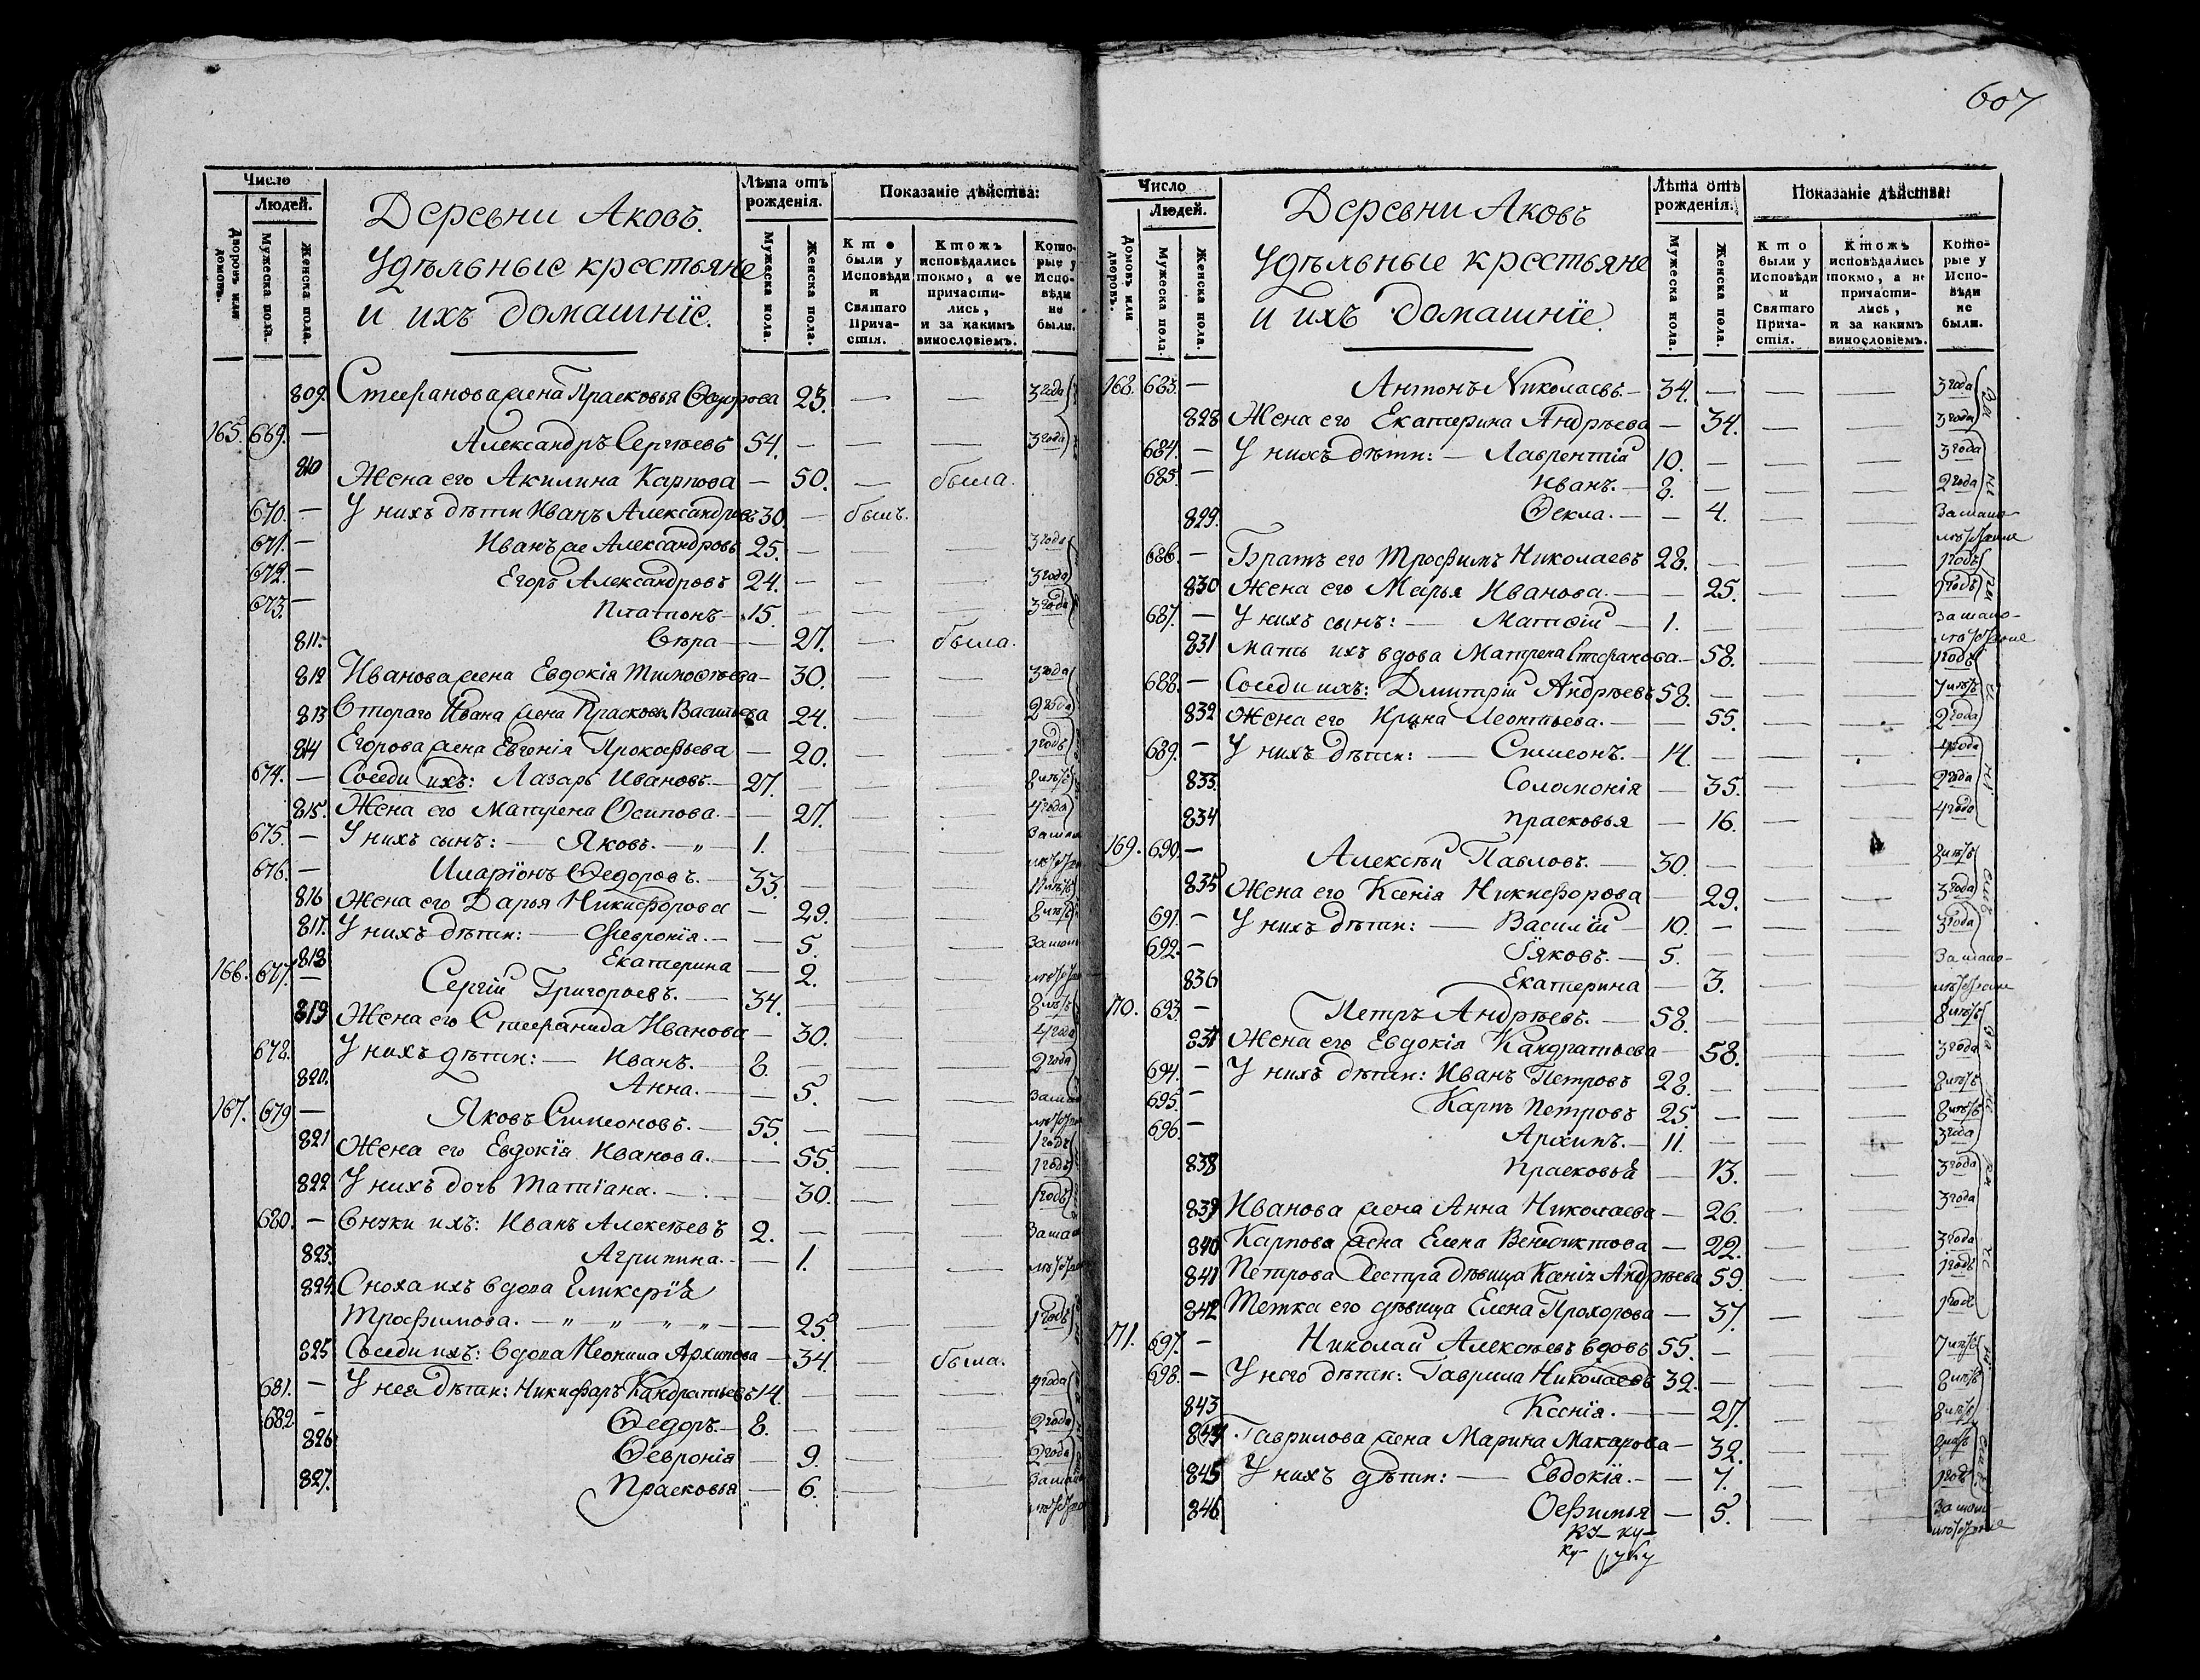 607
Число
Людей.
Дворовъ или домовъ.
Мужеска пола.
Женска пола.
Деревни Аковъ.
Удѣльные крестьяне
и ихъ домашніе.
Лѣта отъ рожденія.
Мужеска пола.
Женска пола.
Показаніе дѣйства:
Кто были у Исповѣди и Святаго Причастія.
Ктожъ исповѣдались токмо, а не причастились, и за какимъ винословіемъ.
Которые у Исповѣди не были.
809. Стефанова жена Прасковья Федорова 23. — — 3 года
165. 669. — Александръ Сергѣевъ 54. — — — 3 года
810 Жена его Акилина Карпова — 50. — была.
670. — У нихъ дѣти Иванъ Александровъ 30. — былъ.
671. — Иванъ же Александровъ 25. — — — 3 года
672. — Егоръ Александровъ 24. — — — 3 года
673. — Платонъ — 15. — — — 3 года
811. Вѣра — — 27. — была.
812 Иванова жена Евдокія Тимофѣева — 30. — — 3 года
813 Втораго Ивана жена Прасковья Васильева 24. — — 2 года
814 Егорова жена Евгенія Прокофьева — 20. — — 1 годъ
674. — Соседи ихъ: Лазарь Ивановъ. — 27. — — — 8 лѣтъ
815. Жена его Матрена Осипова. — — 27. — — 4 года
675. — У нихъ сынъ: — Яковъ. — „ — 1. — — —
676. — Иларіонъ Федоровъ. — 33. — — —
816 Жена его Дарья Никифорова — 29. — — 8 лѣтъ
817. У нихъ дѣти: — Февронія. — — 5. — —
818 Екатерина — 2. — —
166. 677. — Сергій Григорьевъ. — 34. — — — 8 лѣтъ
819 Жена его Стефанида Иванова — 30. — — 4 года
678. У нихъ дѣти: — Иванъ. — 8. — — — 2 года
820. Анна. — — 5. — —
167. 679 — Яковъ Симеоновъ. — 55. — — —
821 Жена его Евдокія Иванова. — — 55. — — 1 годъ
822 У нихъ дочь Татіана. — — 30. — — 1 годъ
680. — Внуки ихъ: Иванъ Алексѣевъ 2. — — —
823. Агрипина. — — 1. — —
824. Сноха ихъ вдова Гликерія
Трофимова. — „ — „ — „ — „ — 25. — — 1 годъ
825 Соседи ихъ: вдова Неонила Архипова — 34. — была.
681. — У нея дѣти: Никифоръ Кандратьевъ 14. — — —
682. — Федоръ. — 8. — — — 2 года
826 Февронія — 9. — — 2 года
827. Прасковья — 6. — —
Число
Людей.
Домовъ или дворовъ.
Мужеска пола.
Женска пола.
Деревни Аковъ
Удѣльные крестьяне
и ихъ домашніе.
Лѣта отъ рожденія.
Мужеска пола.
Женска пола.
Показаніе дѣйства:
Кто были у Исповѣди и Святаго Причастія.
Ктожъ исповѣдались токмо, а не причастились, и за какимъ винословіемъ.
Которые у Исповѣди не были.
168. 683. — Антонъ Николаевъ. — 34. — — — 3 года
828 Жена его Екатерина Андрѣева — 34. — — 3 года
684. — У нихъ дѣти: — Лаврентій 10. — — — 3 года
685. — Иванъ. — 8. — — — 2 года
829. Фекла. — — 4. — — За мало-
лѣтствомъ
686. — Братъ его Трофимъ Николаевъ 28. — — — 1 годъ
830 Жена его Марья Иванова. — — 25. — — 1 годъ
687. — У нихъ сынъ: — Матфій — 1. — — — За мало-
831 Мать ихъ вдова Матрена Стефанова. — 58. — — 1 годъ
688. — Соседи ихъ: Дмитрій Андрѣевъ 58. — — — 7 лѣтъ
832 Жена его Ирина Леонтьева. — — 55. — — 2 года
689. — У нихъ дѣти: — Симеонъ. — 14. — — — 4 года
833. Соломонія — 35. — — 2 года
834 Прасковья — 16. — — 4 года
169. 690. — Алексѣй Павловъ. — 30. — — — 8 лѣтъ
835 Жена его Ксенія Никифорова — 29. — — 3 года
691. — У нихъ дѣти: — Василій — 10. — — — 3 года
692. — Іяковъ. — 5. — — — За мало-
836 Екатерина — 3. — — лѣтствомъ
170. 693. — Петръ Андрѣевъ. — 58. — — — 8 лѣтъ
837 Жена его Евдокія Кандратьева — 58. — — 3 года
694. — У нихъ дѣти: Иванъ Петровъ 28. — — — 8 лѣтъ
695. — Карпъ Петровъ 25. — — — 8 лѣтъ
696. — Архипъ. — 11. — — — 3 года
838 Прасковья — 13. — — 3 года
839 Иванова жена Анна Николаева — 26. — — 3 года
840 Карпова жена Елена Венедиктова — 22. — — 3 года
841 Петрова сестра дѣвица Ксенія Андрѣева 59 — — 1 годъ
842 Тетка его дѣвица Елена Прохорова — 37. — — 1 годъ
171. 697. — Николай Алексѣевъ вдовъ 55. — — — 7 лѣтъ
698. — У него дѣти: Гаврила Николаевъ 32. — — — 8 лѣтъ
843 Ксенія. — — 27. — — 8 лѣтъ
844 Гаврилова жена Марина Макарова — 32. — —
845 У нихъ дѣти: — Евдокія. — — 7. — — 1 годъ
846 Оефимья — 5. — — За мало-